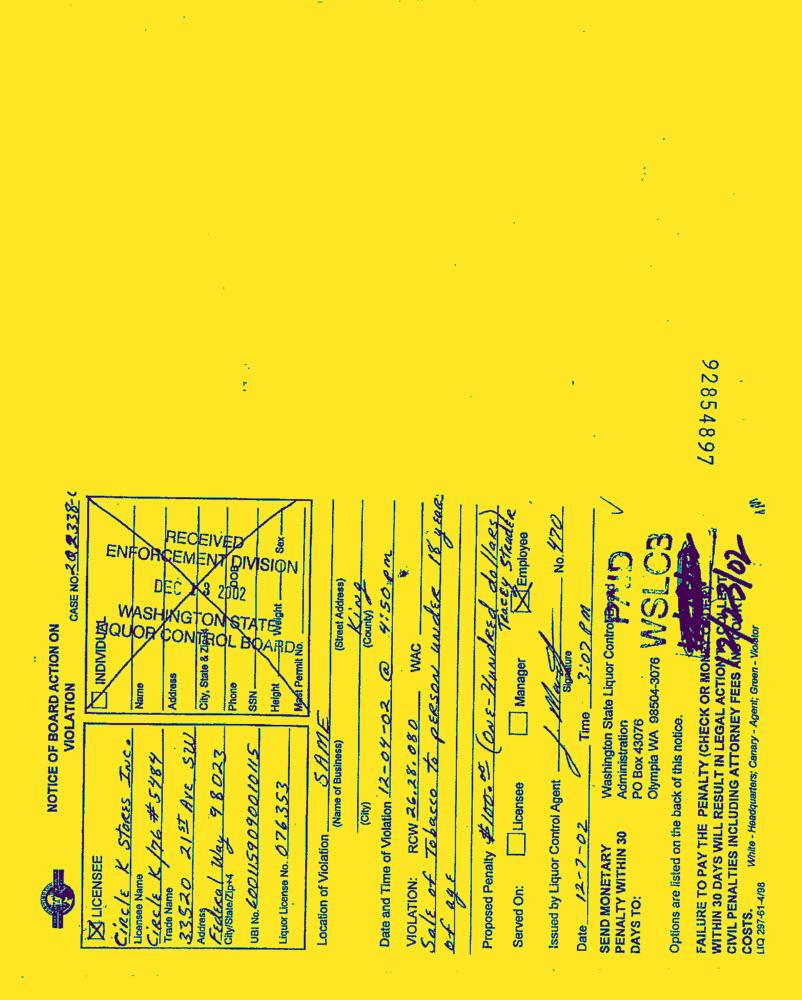 NOTICE OF BOARD ACTION ON
VIOLATION
CASE NO.
LICENSEE
Circle K Stores Inc.
Licensee Name
Circle K/76 #5484
Trade Name
33520 21st Ave SW
Address
Federal Way 98023
City/State/Zip+4
UBI No. 6001159090010115
Liquor License No. 076353
INDIVIDUAL
Name
Address
City, State & Zip+4
Phone
DOB
SSN
Height
Weight
Sex
Mast Permit No.
RECEIVED
ENFORCEMENT DIVISION
DEC 13 2002
WASHINGTON STATE
LIQUOR CONTROL BOARD
Location of Violation SAME
(Name of Business) (Street Address)
King
(City) (County)
Date and Time of Violation 12-04-02 @ 4:50 pm
VIOLATION: RCW 26.28.080 WAC
Sale of Tobacco to person under 18 years
of age
Proposed Penalty $100.00 (One-Hundred dollars)
Tracey Strader
Served On: Licensee Manager Employee
Issued by Liquor Control Agent No. 470
Signature
Date 12-7-02 Time 3:07 PM
SEND MONETARY
PENALTY WITHIN 30
DAYS TO:
Washington State Liquor Control Board
Administration
PO Box 43076
Olympia WA 98504-3076
PAID
WSLCB
12/23/02
Options are listed on the back of this notice.
FAILURE TO PAY THE PENALTY (CHECK OR MONEY
WITHIN 30 DAYS WILL RESULT IN LEGAL ACTION
CIVIL PENALTIES INCLUDING ATTORNEY FEES AND
COSTS.
LIQ 297-61-4/98 White - Headquarters; Canary - Agent; Green - Violator
92854897